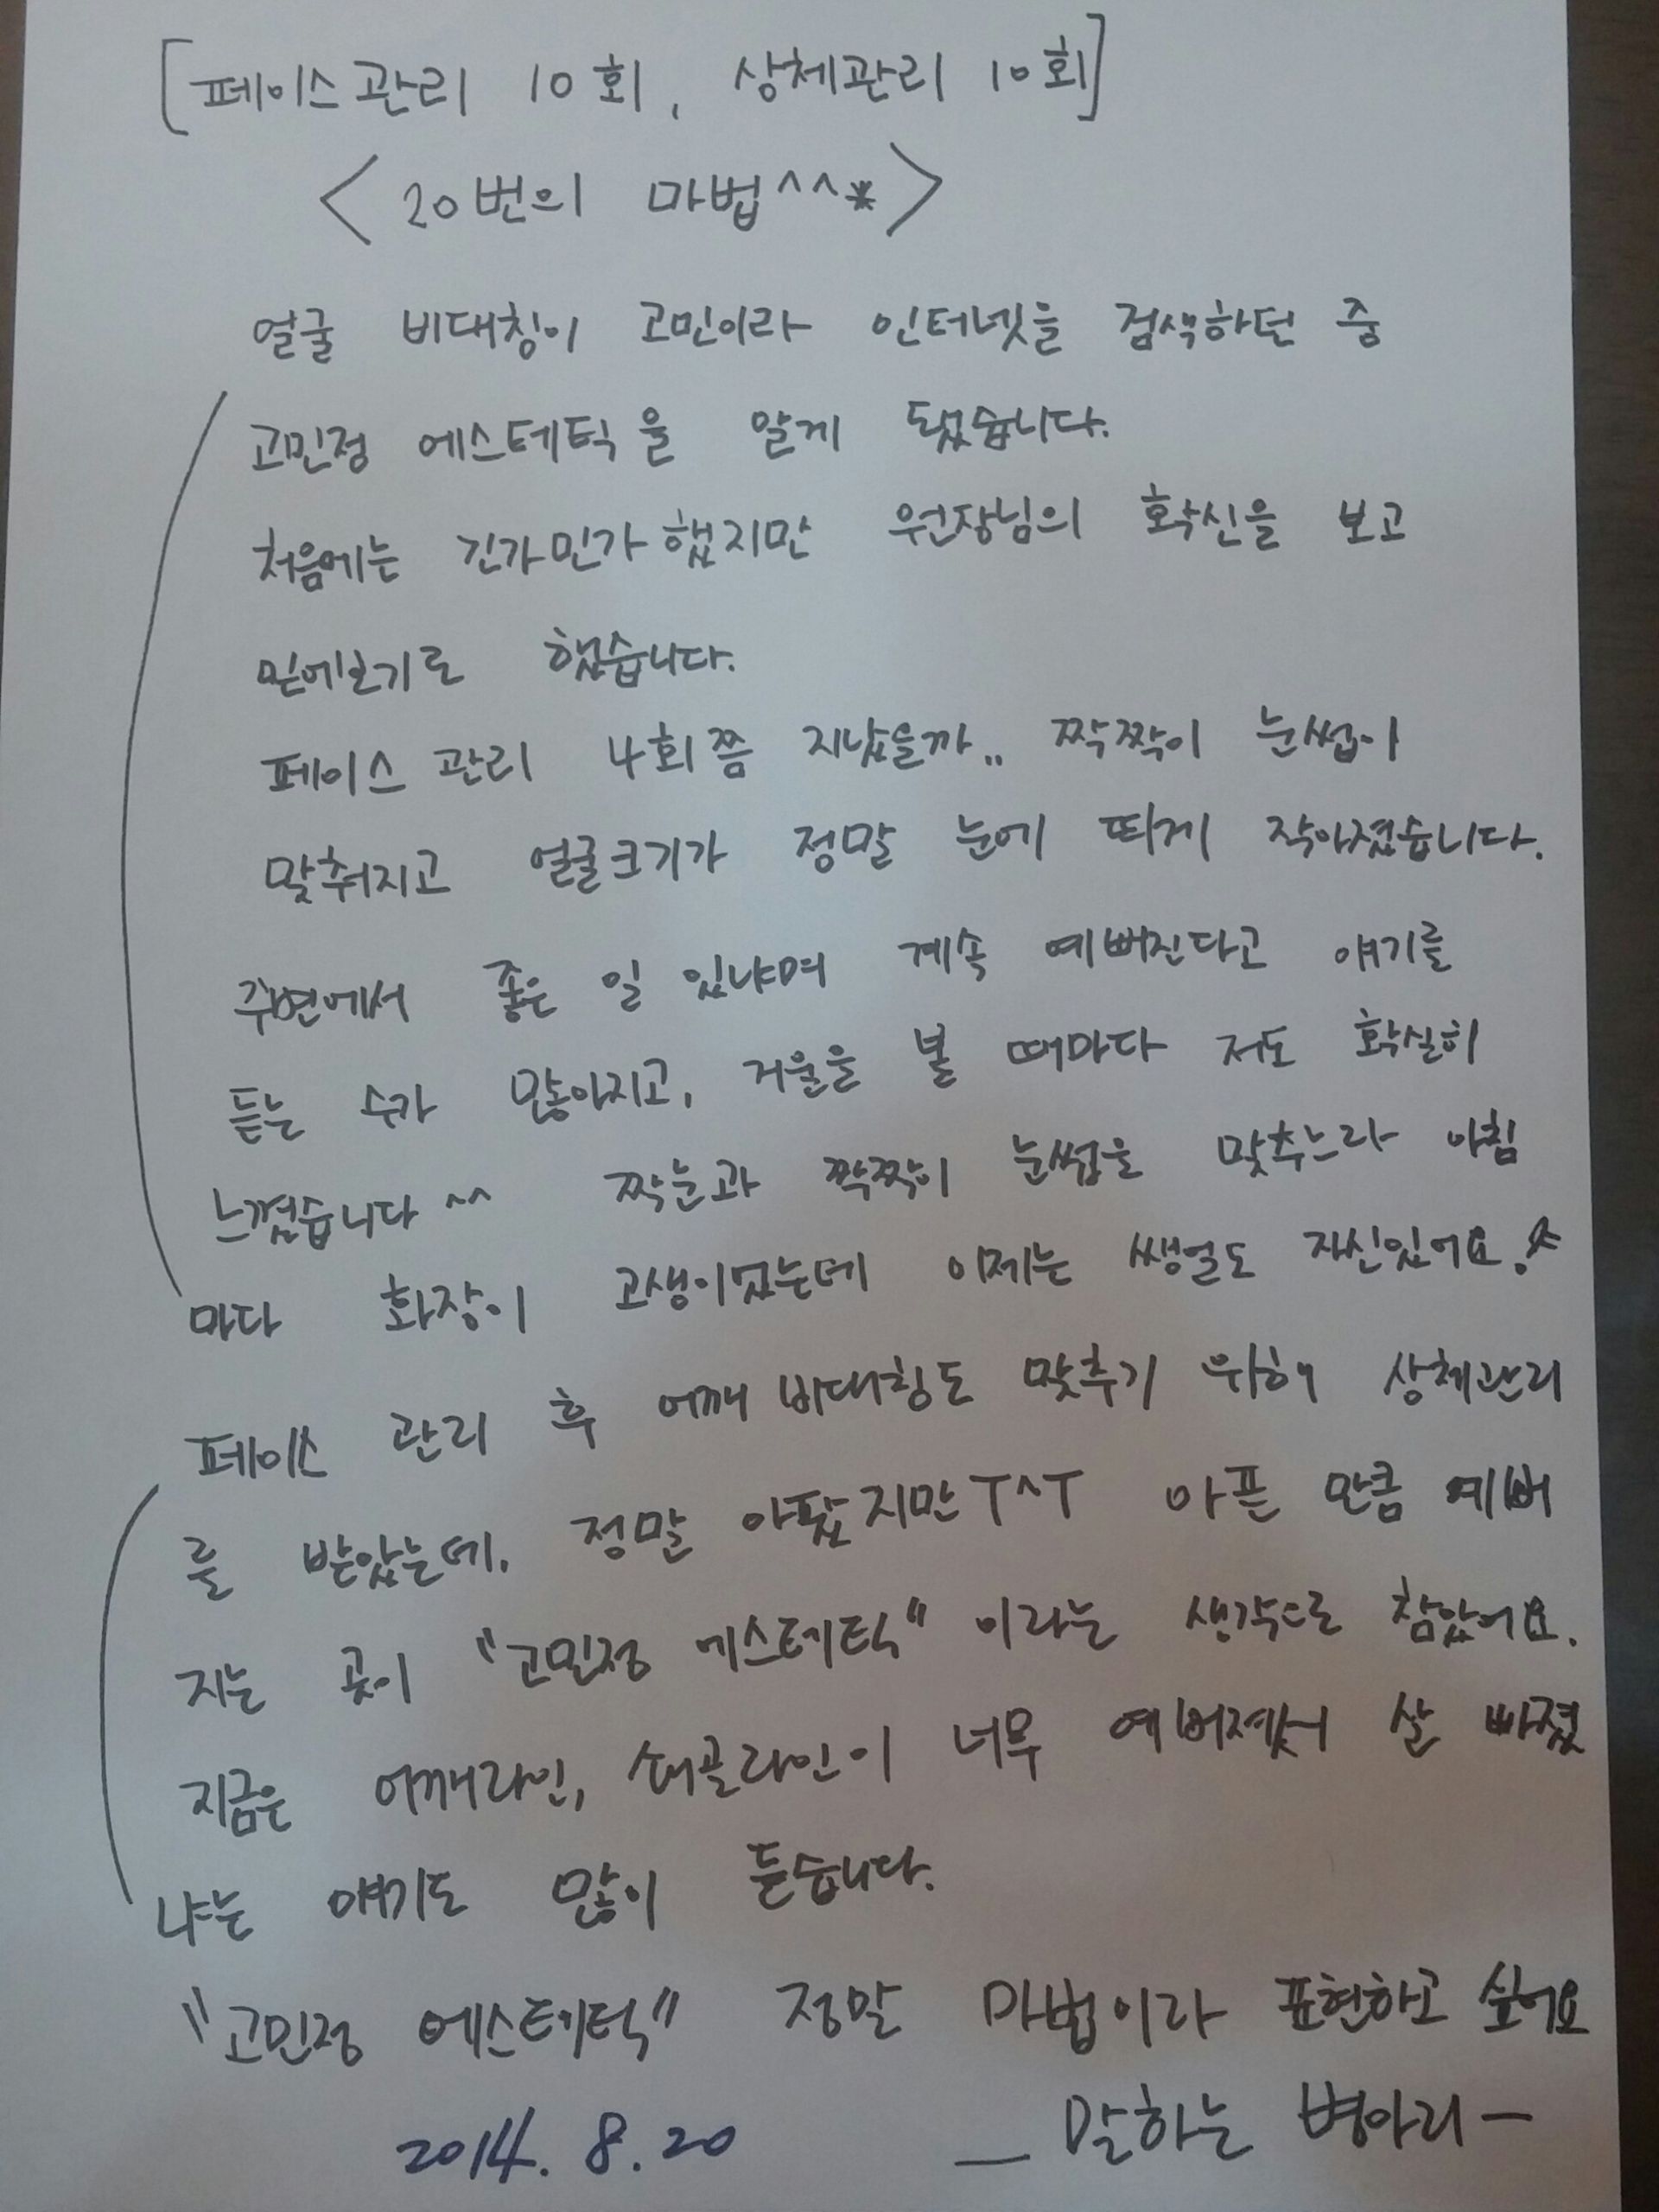 [페이스관리 10회, 상체관리 10회]
<20번의 마법^^*>
얼굴 비대칭이 고민이라 인터넷을 검색하던 중
고민정 에스테틱을 알게 됐습니다.
처음에는 긴가민가했지만 원장님의 확신을 보고
믿에보기로 했습니다.
페이스 관리 4회쯤 지났을까.. 짝짝이 눈썹이
맞춰지고 얼굴크기가 정말 눈에 띄게 작아졌습니다.
주변에서 좋은 일 있냐며 계속 예뻐진다고 얘기를
듣는 수가 많아지고, 거울을 볼 때마다 저도 확실히
느꼈습니다 ^^ 짝눈과 짝짝이 눈썹을 맞추느라 아침
마다 화장이 고생이었는데 이제는 쌩얼도 자신있어요!
페이스 관리 후 어깨 비대칭도 맞추기 위해 상체관리
를 받았는데, 정말 아팠지만 T^T 아픈 만큼 예뻐
지는 곳이 "고민정 에스테틱" 이라는 생각으로 참았어요.
지금은 어깨라인, 쇄골라인이 너무 예뻐졌서 살 빠졌
냐는 얘기도 많이 듣습니다.
"고민정 에스테틱" 정말 마법이라 표현하고 싶어요
2014. 8. 20 — 말하는 병아리 —